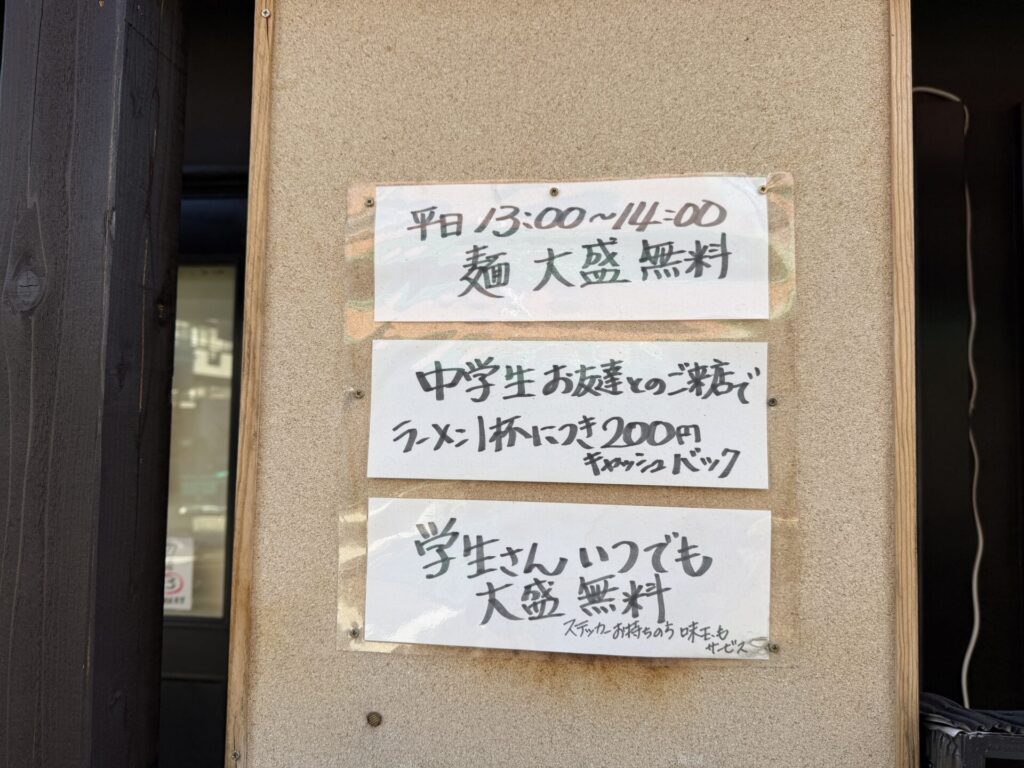 平日 13:00〜14:00
麺 大盛 無料
中学生 お友達とのご来店で
ラーメン1杯につき200円
キャッシュバック
学生さん いつでも
大盛 無料
ステッカーお持ちの方 味玉も
サービス